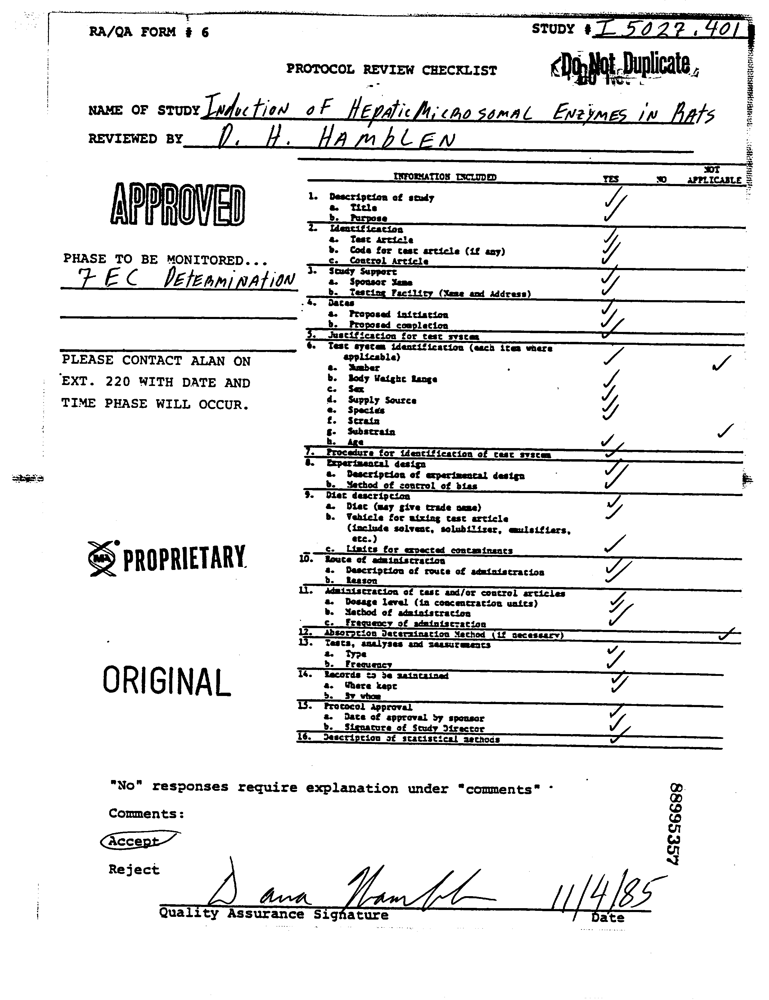 RA/QA FORM # 6
STUDY # I 5027.401
Do Not Duplicate
PROTOCOL REVIEW CHECKLIST
NAME OF STUDY Induction of Hepatic Microsomal Enzymes in Rats
REVIEWED BY D. H. HAMBLEN
INFORMATION INCLUDED YES NO NOT APPLICABLE
APPROVED
PHASE TO BE MONITORED...
7 EC Determination
PLEASE CONTACT ALAN ON
EXT. 220 WITH DATE AND
TIME PHASE WILL OCCUR.
PROPRIETARY
ORIGINAL
1. Description of study
a. Title ✓
b. Purpose ✓
2. Identification
a. Test Article ✓
b. Code for test article (if any) ✓
c. Control Article ✓
3. Study Support
a. Sponsor Name ✓
b. Testing Facility (Name and Address) ✓
4. Dates
a. Proposed initiation ✓
b. Proposed completion ✓
5. Justification for test system ✓
6. Test system identification (each item where
applicable)
a. Number
b. Body Weight Range
c. Sex
d. Supply Source
e. Species
f. Strain
g. Substrain
h. Age
7. Procedure for identification of test system ✓
8. Experimental design
a. Description of experimental design ✓
b. Method of control of bias ✓
9. Diet description
a. Diet (may give trade name) ✓
b. Vehicle for mixing test article ✓
(include solvent, solubilizer, emulsifiers,
etc.)
c. Limits for expected contaminants ✓
10. Route of administration
a. Description of route of administration ✓
b. Reason ✓
11. Administration of test and/or control articles
a. Dosage level (in concentration units) ✓
b. Method of administration ✓
c. Frequency of administration ✓
12. Absorption Determination Method (if necessary) ✓
13. Tests, analyses and measurements
a. Type ✓
b. Frequency ✓
14. Records to be maintained
a. Where kept ✓
b. By whom ✓
15. Protocol Approval
a. Date of approval by sponsor ✓
b. Signature of Study Director ✓
16. Description of statistical methods ✓
"No" responses require explanation under "comments"
Comments:
Accept
Reject
Dana Hamblen 11/4/85
Quality Assurance Signature Date
88995357